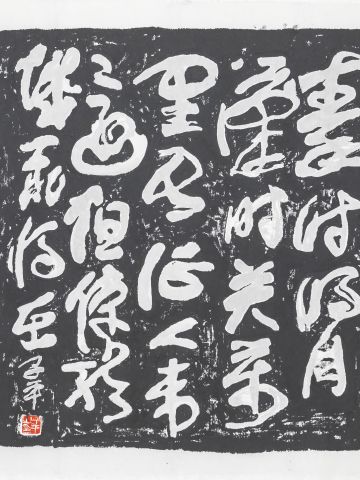 秦时明月
漢时关万
里长征人未
还但使龙
城飞将在